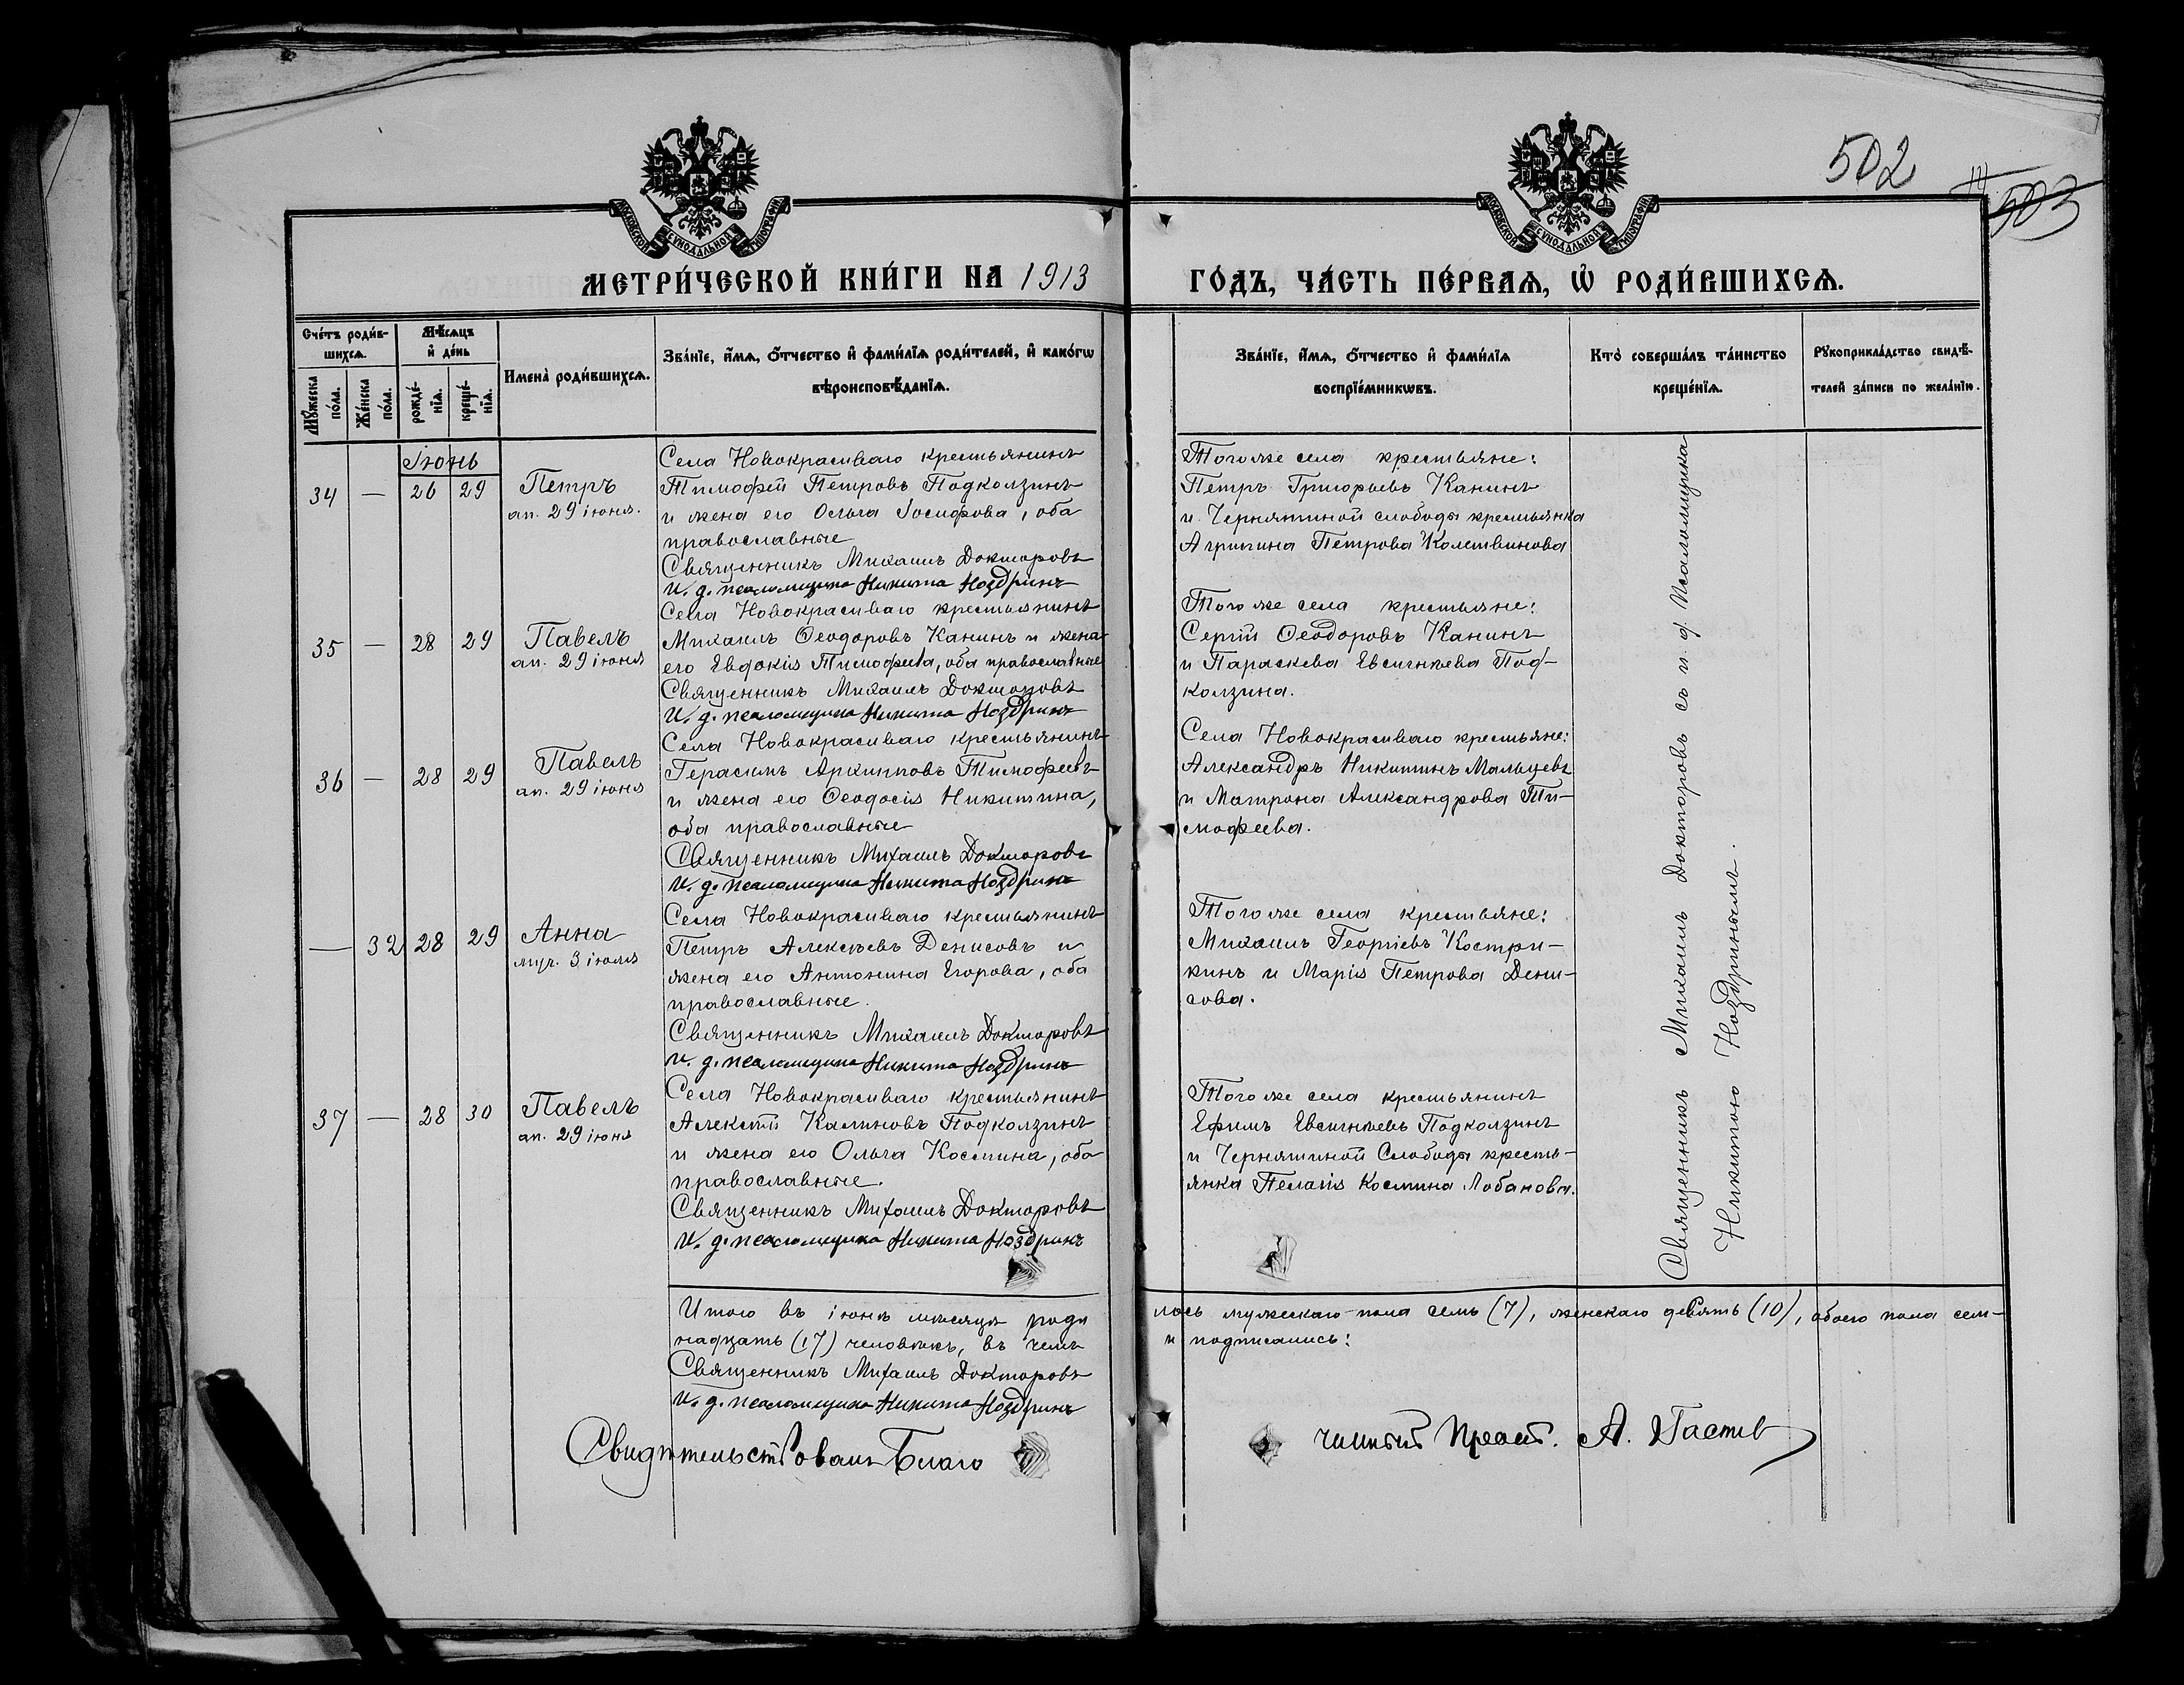 502
503
МОСКОВСКОЙ СѴНОДАЛЬНОЙ ТИПОГРАФІИ
МОСКОВСКОЙ СѴНОДАЛЬНОЙ ТИПОГРАФІИ
МЕТРИ́ЧЕСКОЙ КНИ́ГИ НА 1913
ГО́ДЪ, ЧА́СТЬ ПЕ́РВАѦ, Ѡ҆ РОДИ́ВШИХСѦ.
Сче́тъ роди́в-
шихсѧ.
Мꙋ́жеска по́ла.
Же́нска по́ла.
Мѣ́сѧцъ
и҆ де́нь
рожде́-нїѧ.
креще́-нїѧ.
Имена̀ роди́вшихсѧ.
Зва́нїе, и҆́мѧ, ѻ҆́тчество и҆ фами́лїѧ роди́телей, и҆ како́гѡ
вѣроисповѣ́данїѧ.
Зва́нїе, и҆́мѧ, ѻ҆́тчество и҆ фами́лїѧ
воспрїе́мникѡвъ.
Кто̀ соверша́лъ та́инство
креще́нїѧ.
Рꙋкоприкла́дство свидѣ́-
телей за́писи по жела́нїю.
Іюнь
34 — 26 29
Петръ
ап. 29 іюня.
Села Новокрасиваго крестьянинъ
Тимофей Петровъ Подколзинъ
и жена его Ольга Іосифова, оба
православные
Священникъ Михаилъ Докторовъ
И. д. псаломщика Никита Ноздринъ
Того же села крестьяне:
Петръ Григорьевъ Канинъ
и Чернятиной слободы крестьянка
Агрипина Петрова Колетвинова
35 — 28 29
Павелъ
ап. 29 іюня
Села Новокрасиваго крестьянинъ
Михаилъ Ѳеодоровъ Канинъ и жена
его Евдокія Тимофеева, оба православные
Священникъ Михаилъ Докторовъ
И. д. псаломщика Никита Ноздринъ
Того же села крестьяне:
Сергій Ѳеодоровъ Канинъ
и Параскева Евсигнѣева Под-
колзина.
36 — 28 29
Павелъ
ап. 29 іюня
Села Новокрасиваго крестьянинъ
Герасимъ Архипповъ Тимофеевъ
и жена его Ѳеодосія Никитина,
оба православные
Священникъ Михаилъ Докторовъ
И. д. псаломщика Никита Ноздринъ
Села Новокрасиваго крестьяне:
Александръ Никитинъ Мальцевъ
и Матрона Александрова Ти-
мофеева.
— 32 28 29
Анна
муч. 3 іюля
Села Новокрасиваго крестьянинъ
Петръ Алексѣевъ Денисовъ и
жена его Антонина Егорова, оба
православные.
Священникъ Михаилъ Докторовъ
И. д. псаломщика Никита Ноздринъ
Того же села крестьяне:
Михаилъ Георгіевъ Костри-
кинъ и Марія Петрова Дени-
сова.
37 — 28 30
Павелъ
ап. 29 іюня
Села Новокрасиваго крестьянинъ
Алексѣй Калиновъ Подколзинъ
и жена его Ольга Космина, оба
православные.
Священникъ Михаилъ Докторовъ
И. д. псаломщика Никита Ноздринъ
Того же села крестьянинъ
Ефимъ Евсигнѣевъ Подколзинъ
и Чернятиной Слободы кресть-
янка Пелагія Космина Лобанова.
Священникъ Михаилъ Докторовъ съ и. д. Псаломщика
Никитою Ноздринымъ.
Итого въ іюнѣ мѣсяцѣ роди лось мужескаго пола семь (7), женскаго девять (10), обоего пола сем-
надцать (17) человѣкъ, въ чемъ и подписались:
Священникъ Михаилъ Докторовъ
И. д. псаломщика Никита Ноздринъ
Свидѣтельствовалъ Благо чинный А.